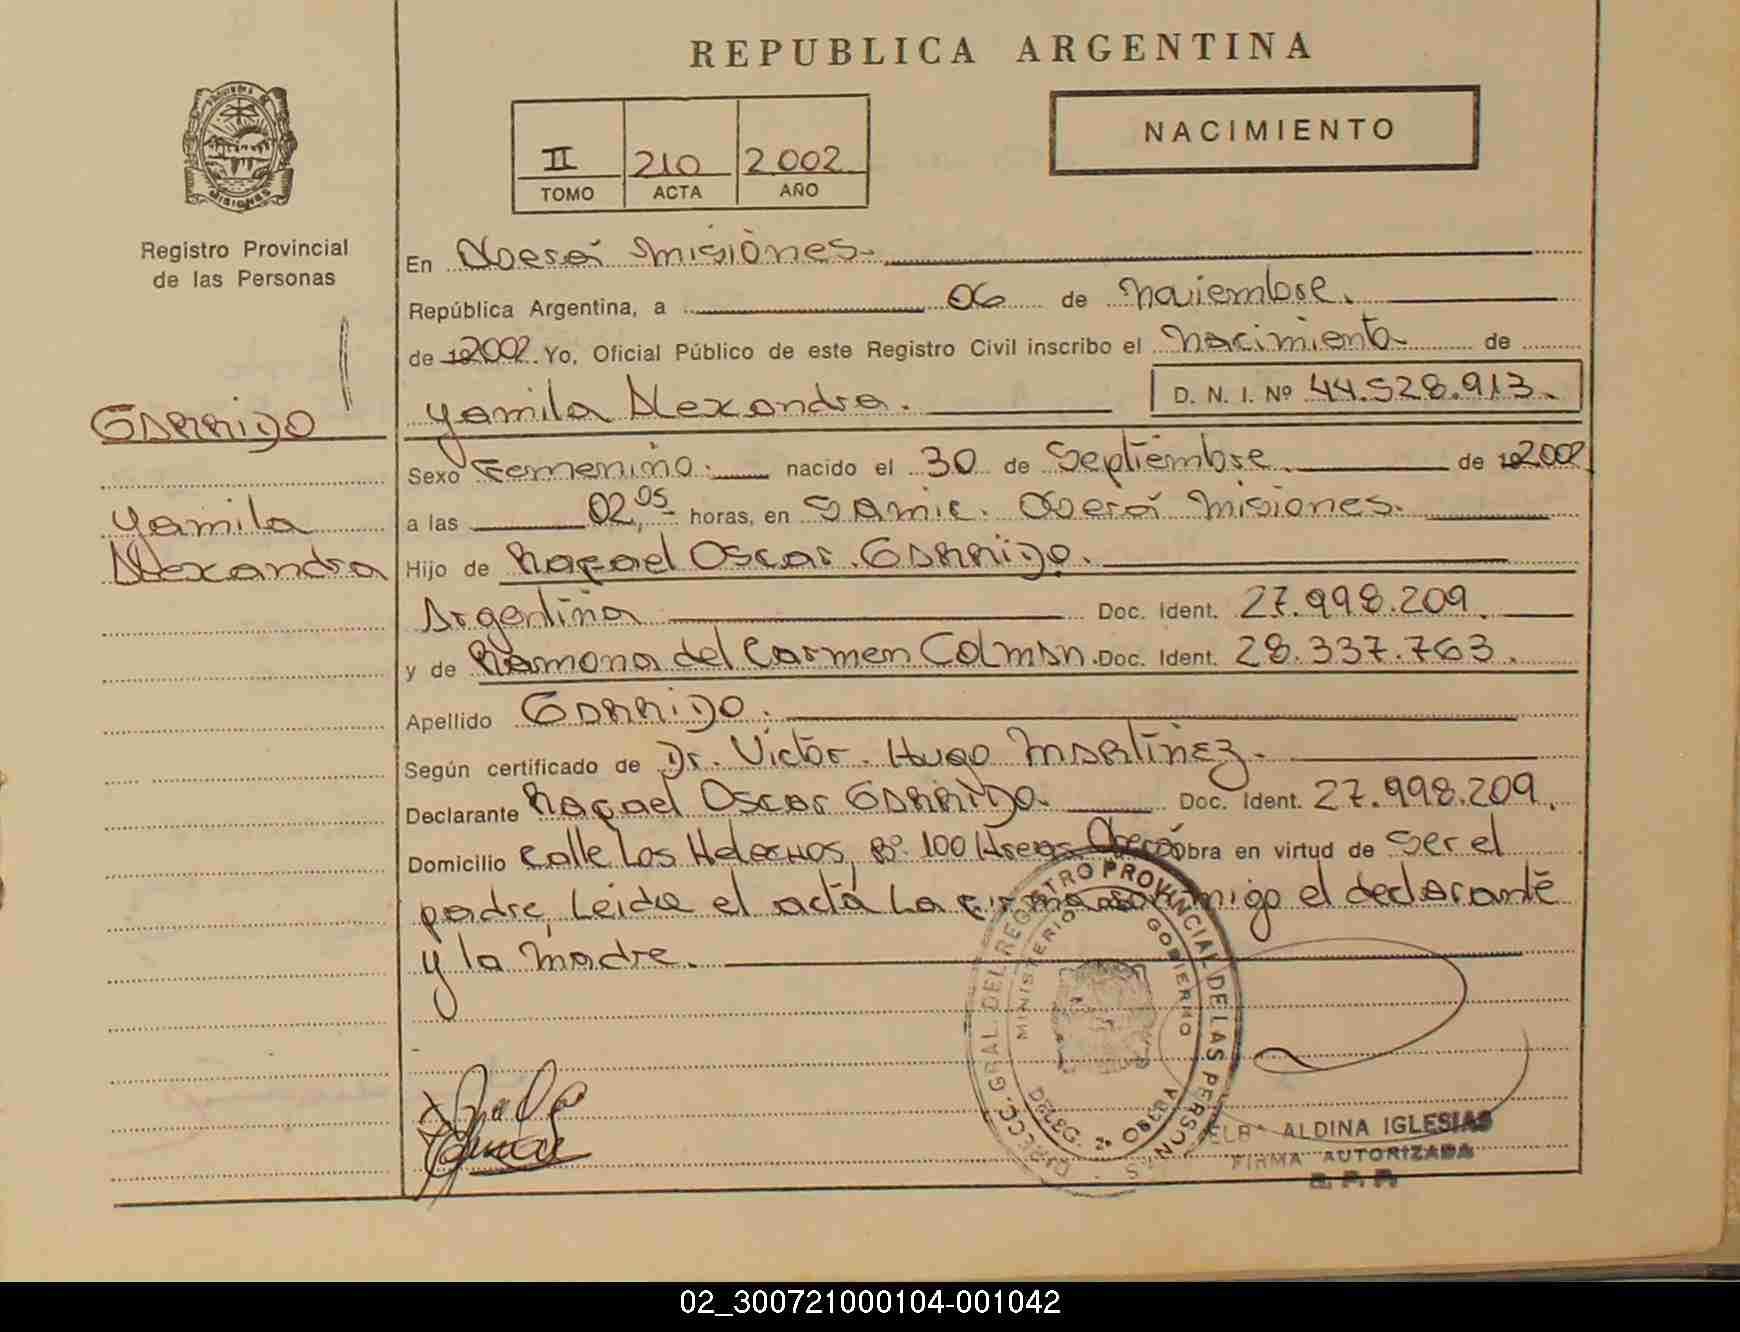 REPUBLICA ARGENTINA
NACIMIENTO
II 210 2.002
TOMO ACTA AÑO
Registro Provincial
de las Personas
En Oberá Misiones.
República Argentina, a 06 de Noviembre.
de 192002 Yo, Oficial Público de este Registro Civil inscribo el Nacimiento de
Yamila Alexandra. D. N. I. Nº 44.528.913.
GARRIDO
Yamila
Alexandra
Sexo Femenino. nacido el 30 de Septiembre de 192002
a las 02,05 horas, en SAMIC. Oberá Misiones.
Hijo de Rafael Oscar GARRIDO.
Argentina Doc. Ident. 27.998.209
y de Ramona del Carmen COLMAN. Doc. Ident. 28.337.763.
Apellido GARRIDO.
Según certificado de Dr. Victor Hugo MARTINEZ.
Declarante Rafael Oscar GARRIDO. Doc. Ident. 27.998.209.
Domicilio Calle Los Helechos, Bº 100 Hreas Oberá obra en virtud de ser el
padre, Leida el acta La firman conmigo el declarante
y la madre.
DIRECC. GRAL. DEL REGISTRO PROVINCIAL DE LAS PERSONAS
MINISTERIO DE GOBIERNO
DELEG. 2 OBERA
ELBA ALDINA IGLESIAS
FIRMA AUTORIZADA
R. P. P.
02_300721000104-001042